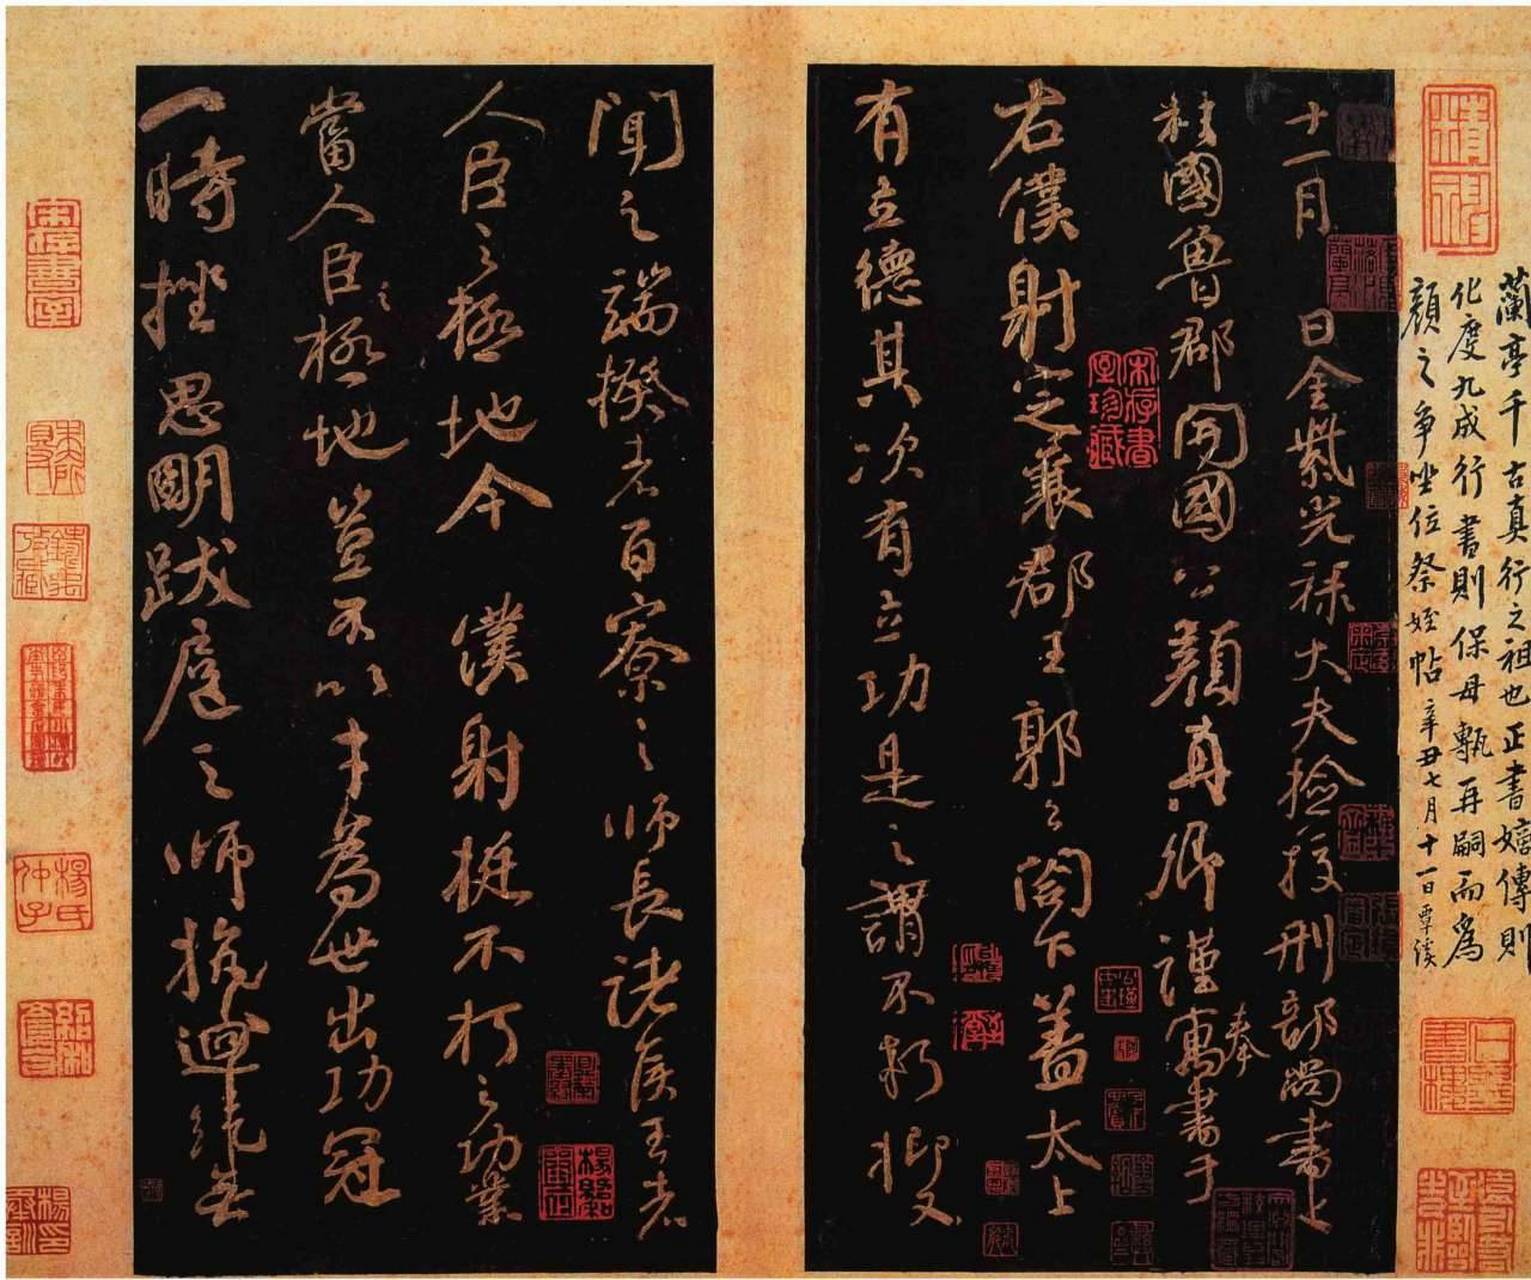 蘭亭千古真行之祖也正書嫡傳則
化度九成行書則保母甎再嗣而爲
顏之爭坐位祭姪帖辛丑七月十一日覃溪
十一月 日金紫光祿大夫撿挍刑部尚書上
柱國魯郡開國公顏真卿謹寓書于
奉
右僕射定襄郡王郭公閤下蓋太上
有立德其次有立功是之謂不朽抑又
聞之端揆者百寮之師長諸侯王者
人臣之極地今 僕射挺不朽之功業
當人臣之極地豈不以才為世出功冠
一時挫思明跋扈之師抗迴紇無
宋存書室珍藏
楊氏仲子